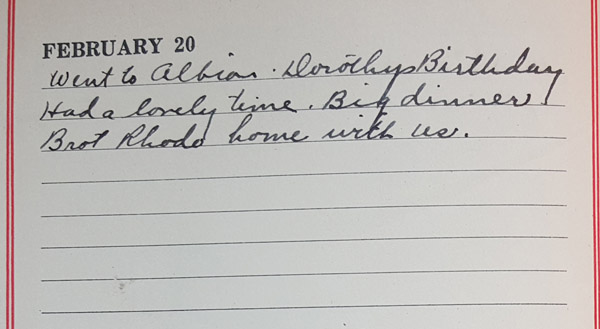 FEBRUARY 20
Went to Albion. Dorothys Birthday
Had a lovely time. Big dinner.
Brot Rhoda home with us.